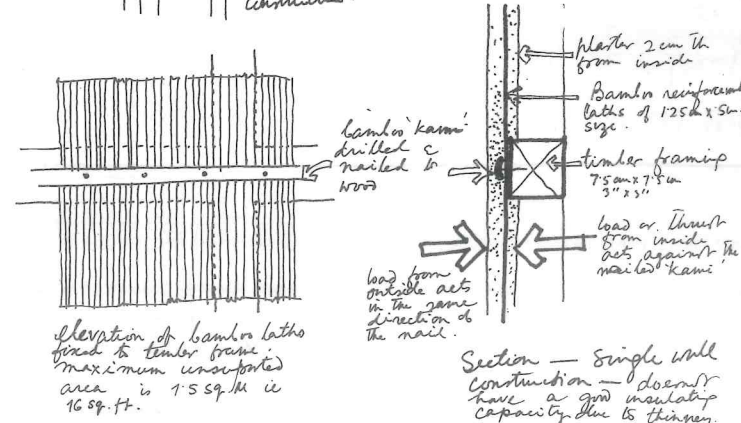 bamboo 'kami'
drilled &
nailed to
wood
plaster 2 cm th
from inside
Bamboo reinforcement
laths of 1.25cm x 5cm
size.
timber framing
7.5cm x 7.5cm
3" x 3"
load or thrust
from inside
acts against the
nailed 'kami'
load from
outside acts
in the same
direction of
the nail.
elevation of bamboo laths
fixed to timber frame.
maximum unsupported
area is 1.5 sq.M ie
16 sq. ft.
Section — Single wall
construction — doesn't
have a good insulating
capacity due to thinness.